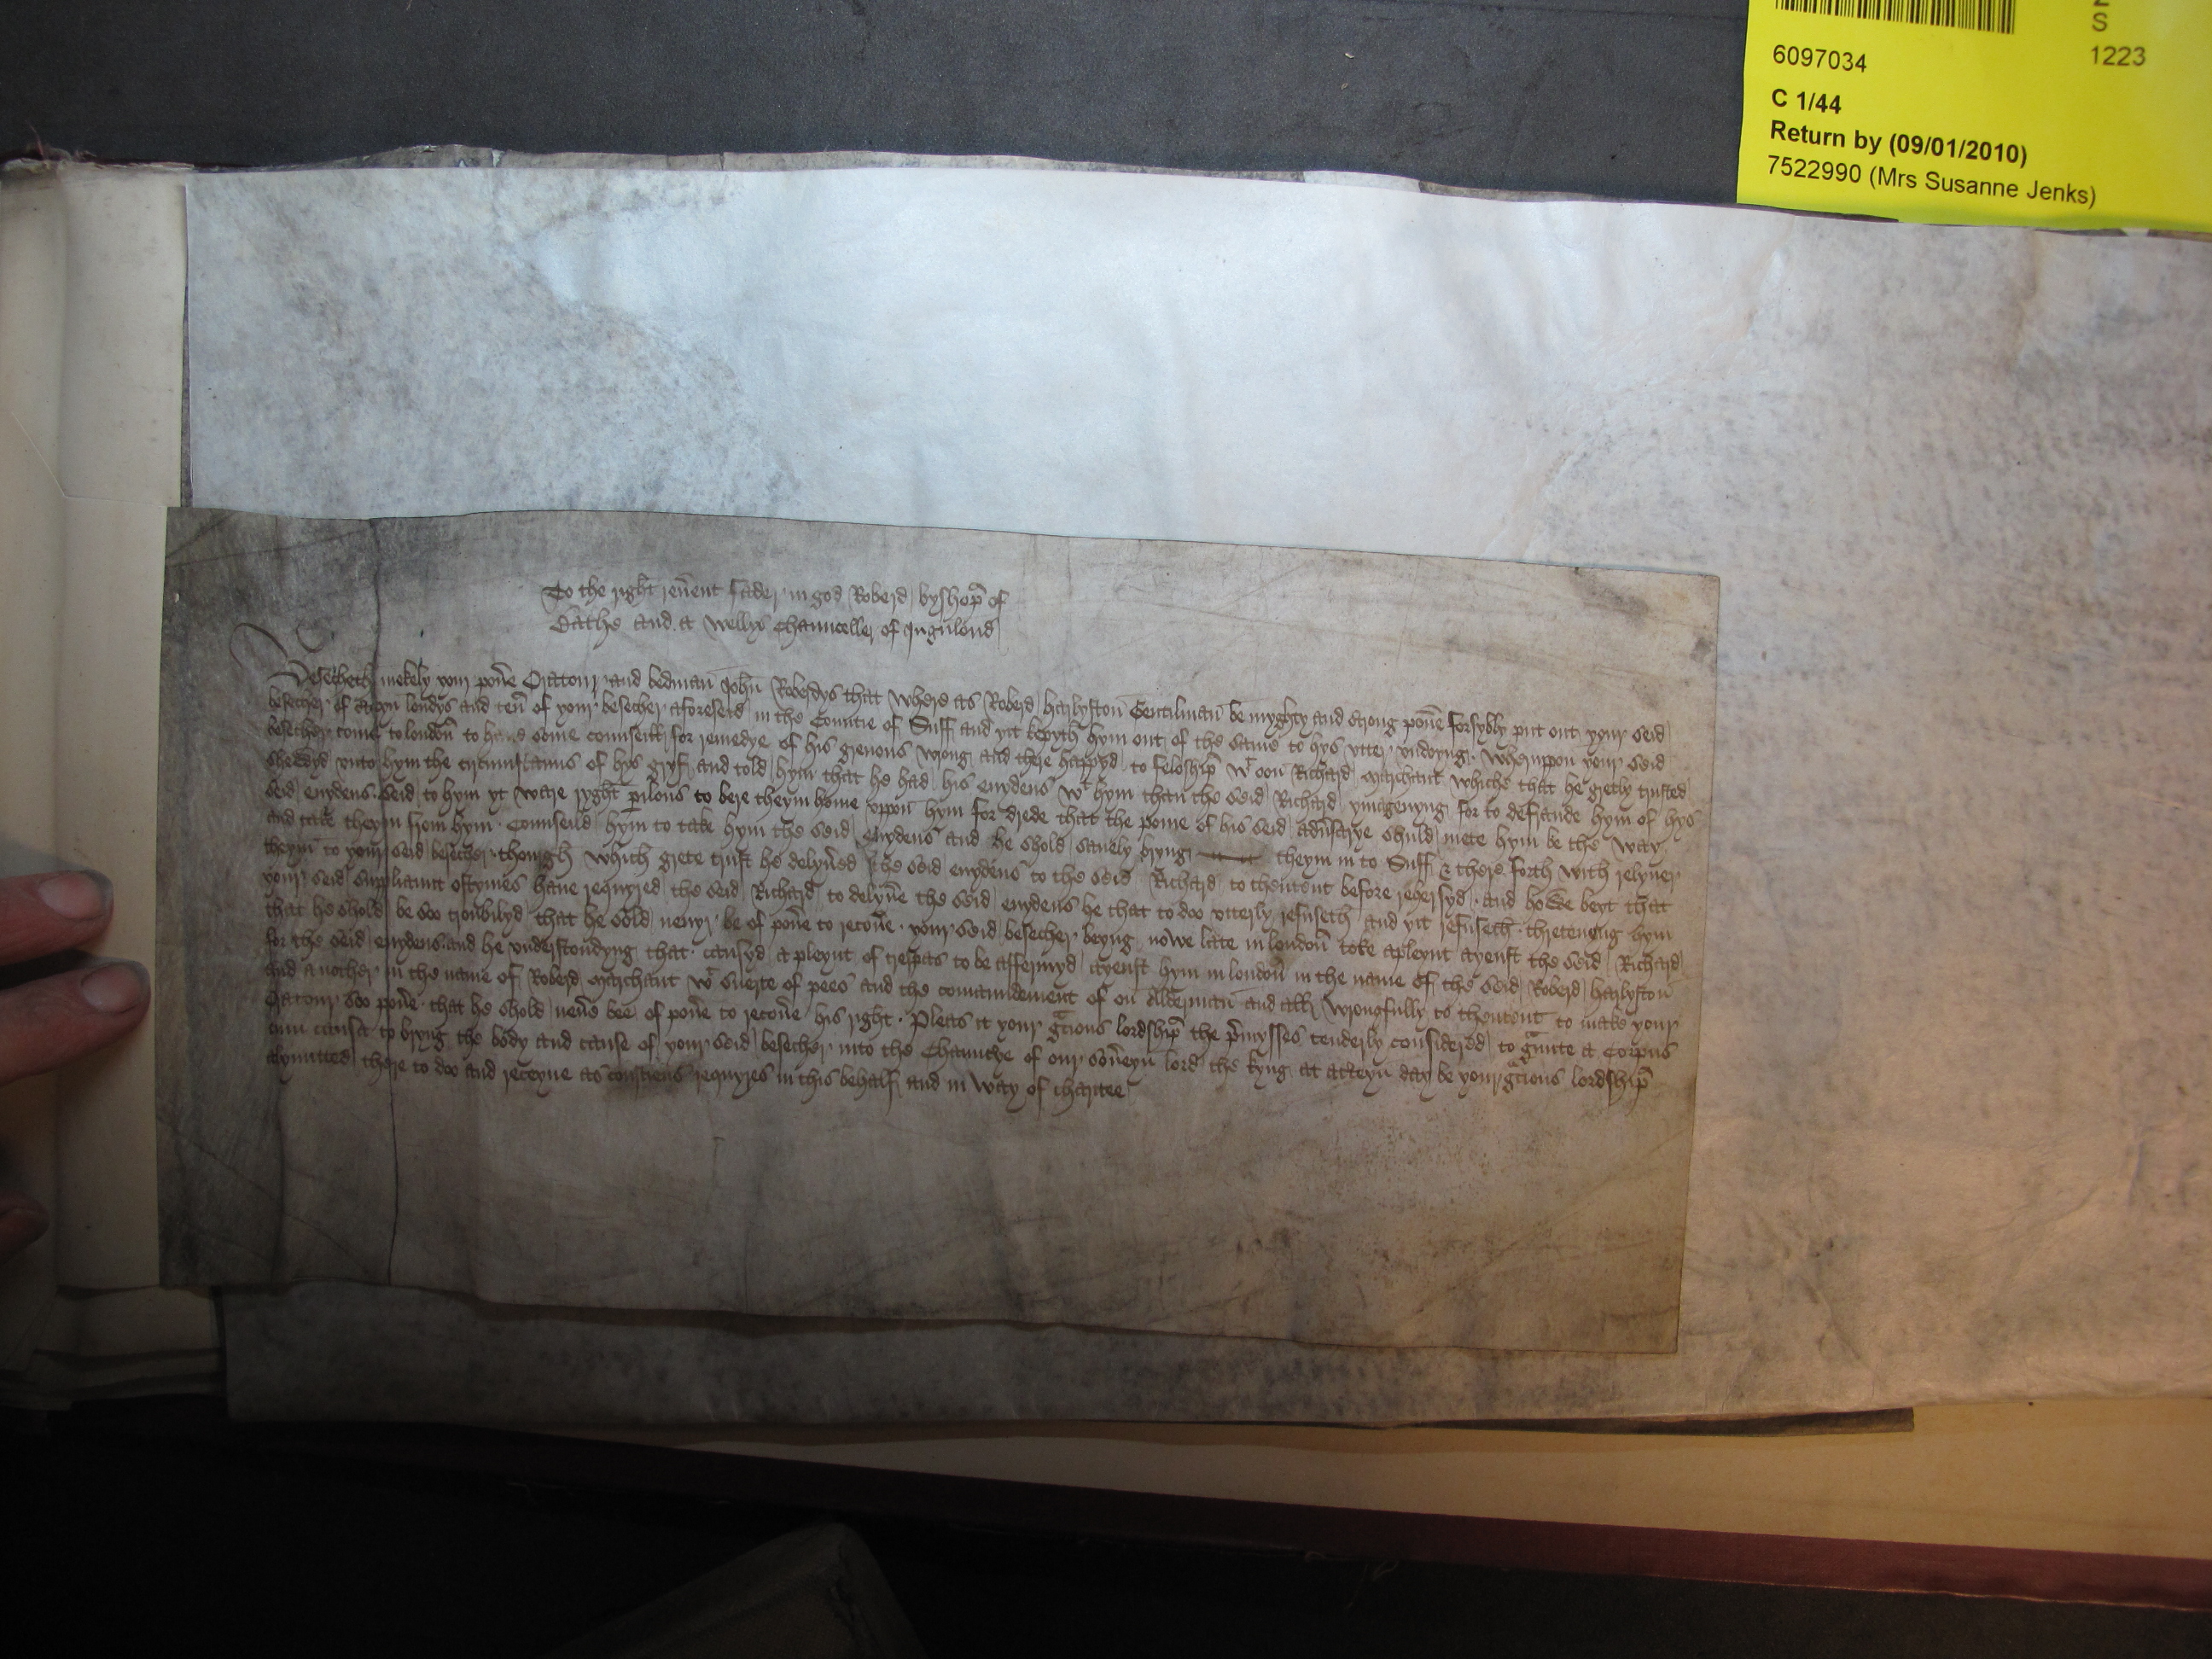 2
S
1223
6097034
C 1/44
Return by (09/01/2010)
7522990 (Mrs Susanne Jenks)
To the right reu̅ent Fader in god Roberd byshop̅ of
Bathe and a Wellys Chauncelle of Ingulond
Besecheth mekely your pou̅e Oratour and bedman̅ John̅ Roberdys that where as Roberd harlyston̅ Gentilman̅ be myghty and strong pou̅e forsybly put out your seid
besecher of londys and ten̅ of your besecher aforeseid in the Countie of Suff and yit kepyth hym out of the same to hys vtter vndoyng. Wheruppon your seid
besecher come to london̅ to haue some counseill for remedye of his greuous wrong and there happyd to feloship̅ wt oon Richard marchant whiche that he gretly trusted
shewdyd vnto hym the circumstanns of hys gryf and told hym that he had his euydens wt hym than the seid Richard ymagenyng for to defraude hym of hys
seid euydens seid to hym yt ware ryght p̅ilous to bere theym home vppon̅ hym for drede that the pouie of his seid adu̅sarye shuld mete hym be the way
and take theym from hym. Counseild hym to take hym the seid euydens and he shold sauely bryng theym in to Suff & there forth with relyuer
theym to your seid besecher though which grete trust he delyu̅ed the seid euydens to the seid Richard to thentent before rehersyd. and howe beyt that
your seid suppliaunt oftymes haue requyred the seid Richard to delyu̅e the seid euydens he that to doo vtterly refuseth and yit refuseth. threteneng hym
that he shold be soo troubilyd that he sold neuyr be of pou̅e to recou̅e. your seid besecher beyng nowe late in london̅ toke a pleynt ayenst the seid Richard
for the seid euydens. and he vnderstondyng that. causyd a pleynt of trespas to be affermyd ayenst hym in london̅ in the name of the seid Roberd harlyston̅
and another in the name of Roberd marchant wt suerte of pees and the comaundement of on Alderman̅ and all wrongfully to thentent to make your
Oratour soo pou̅e. that he shold neu̅e bee of pou̅e to recou̅e his right. Pleas it your g̅cious lordship̅ the p̅mysses tenderly considered to g̅unte a Corpus
cum causa to bryng the body and cause of your seid besecher into the Chauncye of our sou̅eyn lord the kyng at a c̅teyn day be your g̅cious lordship̅
alymitted there to doo and receyue as consciens requyres in this behalf and in way of charitee